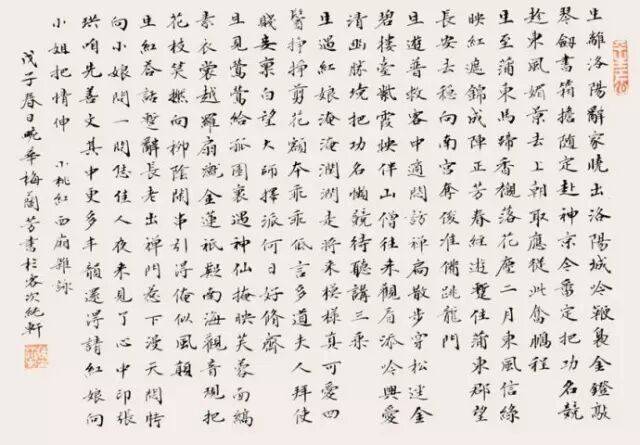 生離洛陽辭家曉出洛陽城吟鞭裊金鐙敲
琴劍書箱擔隨定赴神京今番定把功名競
趁東風媚景去上朝取應從此奮鵬程
生至蒲東馬蹄香襯落花塵二月東風信綠
映紅遮錦成陣正芳春經遊暫住蒲東郡望
長安去穩向南宮奪俊準備跳龍門
生遊普救客中適悶訪禪扃散步穿松逕金
碧樓臺紫霞映伴山僧往來觀眉添吟興愛
清幽勝境把功名懶競待聽講三乘
生遇紅娘淹淹潤潤走將來模樣真可愛四
鬢挣挣剪花顏本乖乖低言多道夫人拜使
賤妾稟白望大師擇派何日好脩齋
生見鶯鶯給孤園裏遇神仙掩映芙蓉面縞
素衣裳越羅扇瓣金蓮祇疑南海觀音現把
花枝笑撚向柳陰閑串引得俺似風顛
生紅答話暫辭長老出禪門惹下漫天悶時
向小娘問一問恁佳人夜來見了心中印張
珙咱先善文其中更多丰韻還得請紅娘向
小姐把情伸 小桃紅西廂雜詠
戊子春日畹華梅蘭芳書於客次純軒